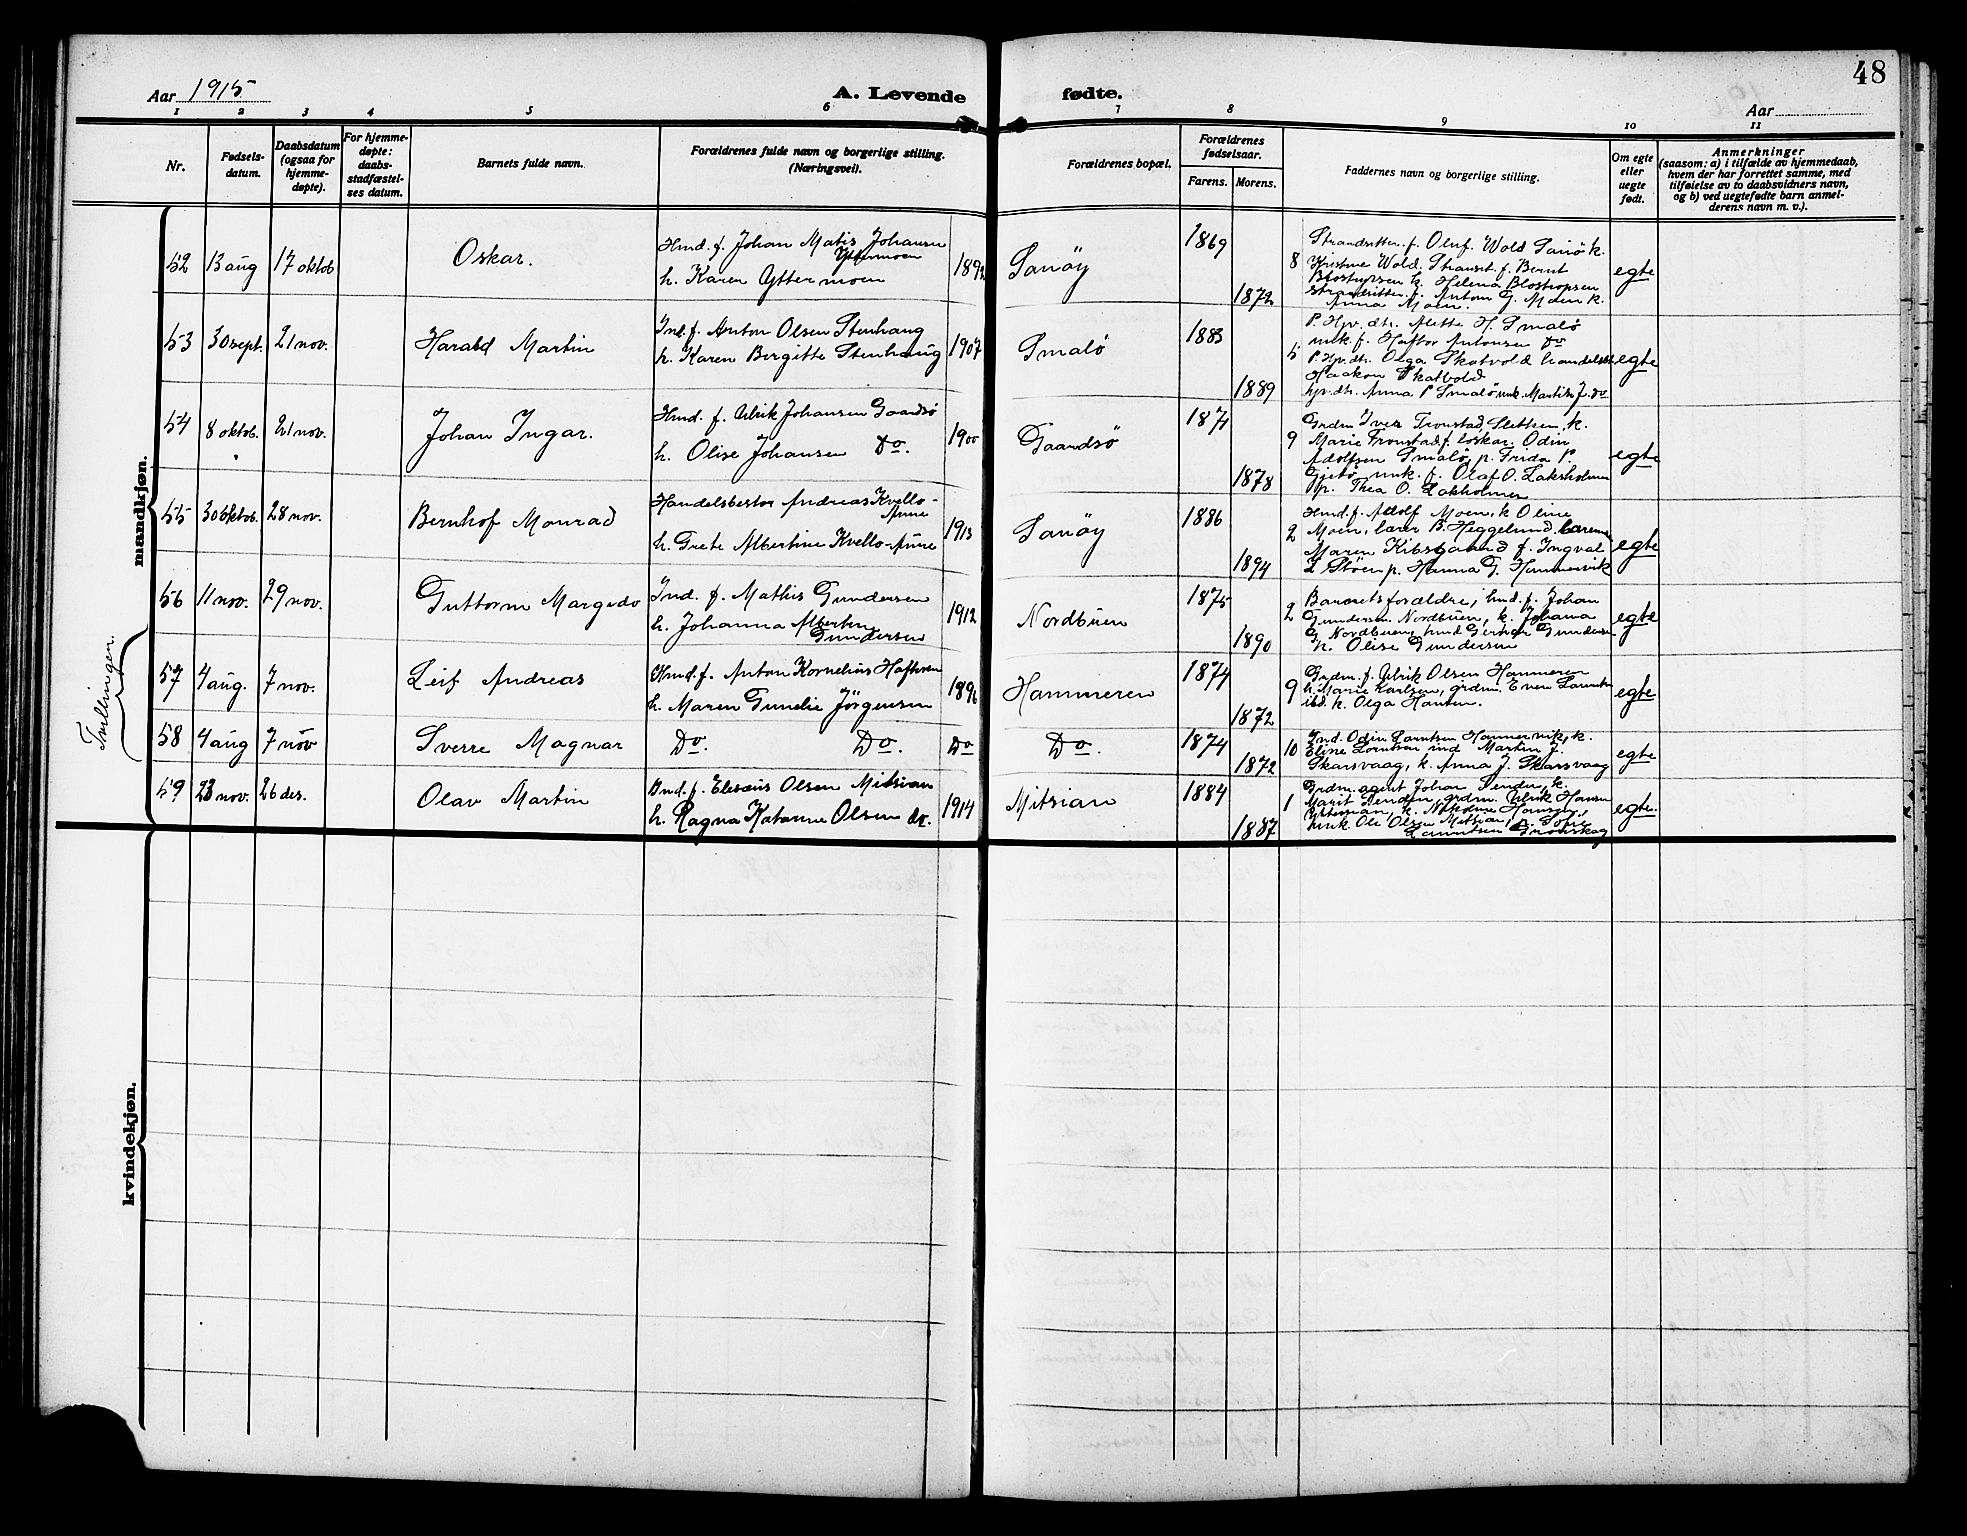 48
Aar 1915
A. Levende
fødte.
Aar
1 2 3 4 5 6 7 8 9 10 11
Nr.
Fødsels-
datum.
Daabsdatum
(ogsaa for
hjemme-
døpte).
For hjemme-
døpte:
daabs-
stadfæstel-
ses datum.
Barnets fulde navn.
Forældrenes fulde navn og borgerlige stilling.
(Næringsvei).
Forældrenes bopæl.
Forældrenes
fødselsaar.
Farens. Morens.
Faddernes navn og borgerlige stilling.
Om egte
eller
uegte
født.
Anmerkninger
(saasom: a) i tilfælde av hjemmedaab,
hvem der har forrettet samme, med
tilføielse av to daabsvidners navn,
og b) ved uegtefødte barn anmel-
derens navn m. v.).
mandkjøn.
52 13 aug 17 oktob
Oskar.
Hmd. f. Johan Matis Johansen
Yttermoen
h. Karen Yttermoen
1892
Sanöy
1869
1872
8
Strandsitter f. Oluf Wold Sanö k.
Kristine Wold, Strans. f. Bernt
k. Helena Blostrupsen
strandsitter f. Anton G. Moen k.
Anna Moen.
egte
53 30 sept. 21 nov.
Harald Martin
Ind. f. Anton Olsen Stenhaug
h. Karen Bergitte Stenhaug
1907
Smalö
1883
1889
5
P. Hpv. dtr. Mette H. Smalö
unk. f. Haftor Antonsen Do
P. Hp. dtr. Olga Skatvold handelsb.
Haakon Skatvold
hp. dtr. Anna P Smalö unk. Martin J. do
egte
54 8 oktob. 21 nov.
Johan Ingar.
Hmd. f. Ulrik Johansen Gaardsö
h. Olise Johansen Do.
1900
Gaardsö
1874
1878
9
Grdm Iver Tronstad, Sletten, k.
Marie Tronstad, f. löskar. Odin
Adolfsen Smalö, p. Frida P.
Gjetö, unk. f. Olaf O. Laksholmen
p. Thea O. Lakholmen
egte
55 30 oktob. 28 nov.
Bernhof Monrad
Handelsbestyr Andreas Kvello-
Aune
h. Grete Albertine Kvello-Aune
1913
Sanöy
1886
1894
2
Hmd. f. Adolf Moen, k Oline
Moen, lærer B. Heggelund, lærerinne
Maren Kibsgaard f. Ingval
L Stöen p. Hanna G. Hammervik
egte
56 11 nov. 29 nov.
Guttorm Margido
Ind. f. Mathis Gundersen
h. Johanna Albertine
Gundersen
1912
Nordbuen
1875
1890
2
Barnets forældre, hmd. f. Johan
Gundersen Nordbuen, k. Johanna
G. Nordbuen, hmd Gerhar Gundersen
k. Olise Gundersen
egte
Tvillingen.
57 4 aug. 7 nov.
Leif Andreas
Hmd. f. Anton Kornelius Haftorsen
h. Maren Gunelie Jörgensen
1896
Hammeren
1874
1872
9
Grdm. f. Ulrik Olsen Hammeren
k. Marie Karlsen, grdm. Even Larntsen
ibd. k. Olga Hansen.
egte
58 4 aug 7 nov
Sverre Magnar
Do. Do. Do
Do.
1874
1872
10
Ind. Odin Larntsen Hammervik, k.
Eline Larntsen ind Martin J.
Skarsvaag, k. Anna J. Skarsvaag
egte
59 23 nov. 26 des.
Olav Martin
Ind. f. Elesæus Olsen Mitsian
h. Ragna Katarine Olsen do.
1914
Mitsian
1884
1887
1
Grdm. agent Johan Senden, k.
Marit Senden, grdm. Ulrik Hansen
k. Nikoline Hansen,
unk. Ole Olsen Mitsian, p. Sofie
Larntsen
egte.
kvindekjøn.